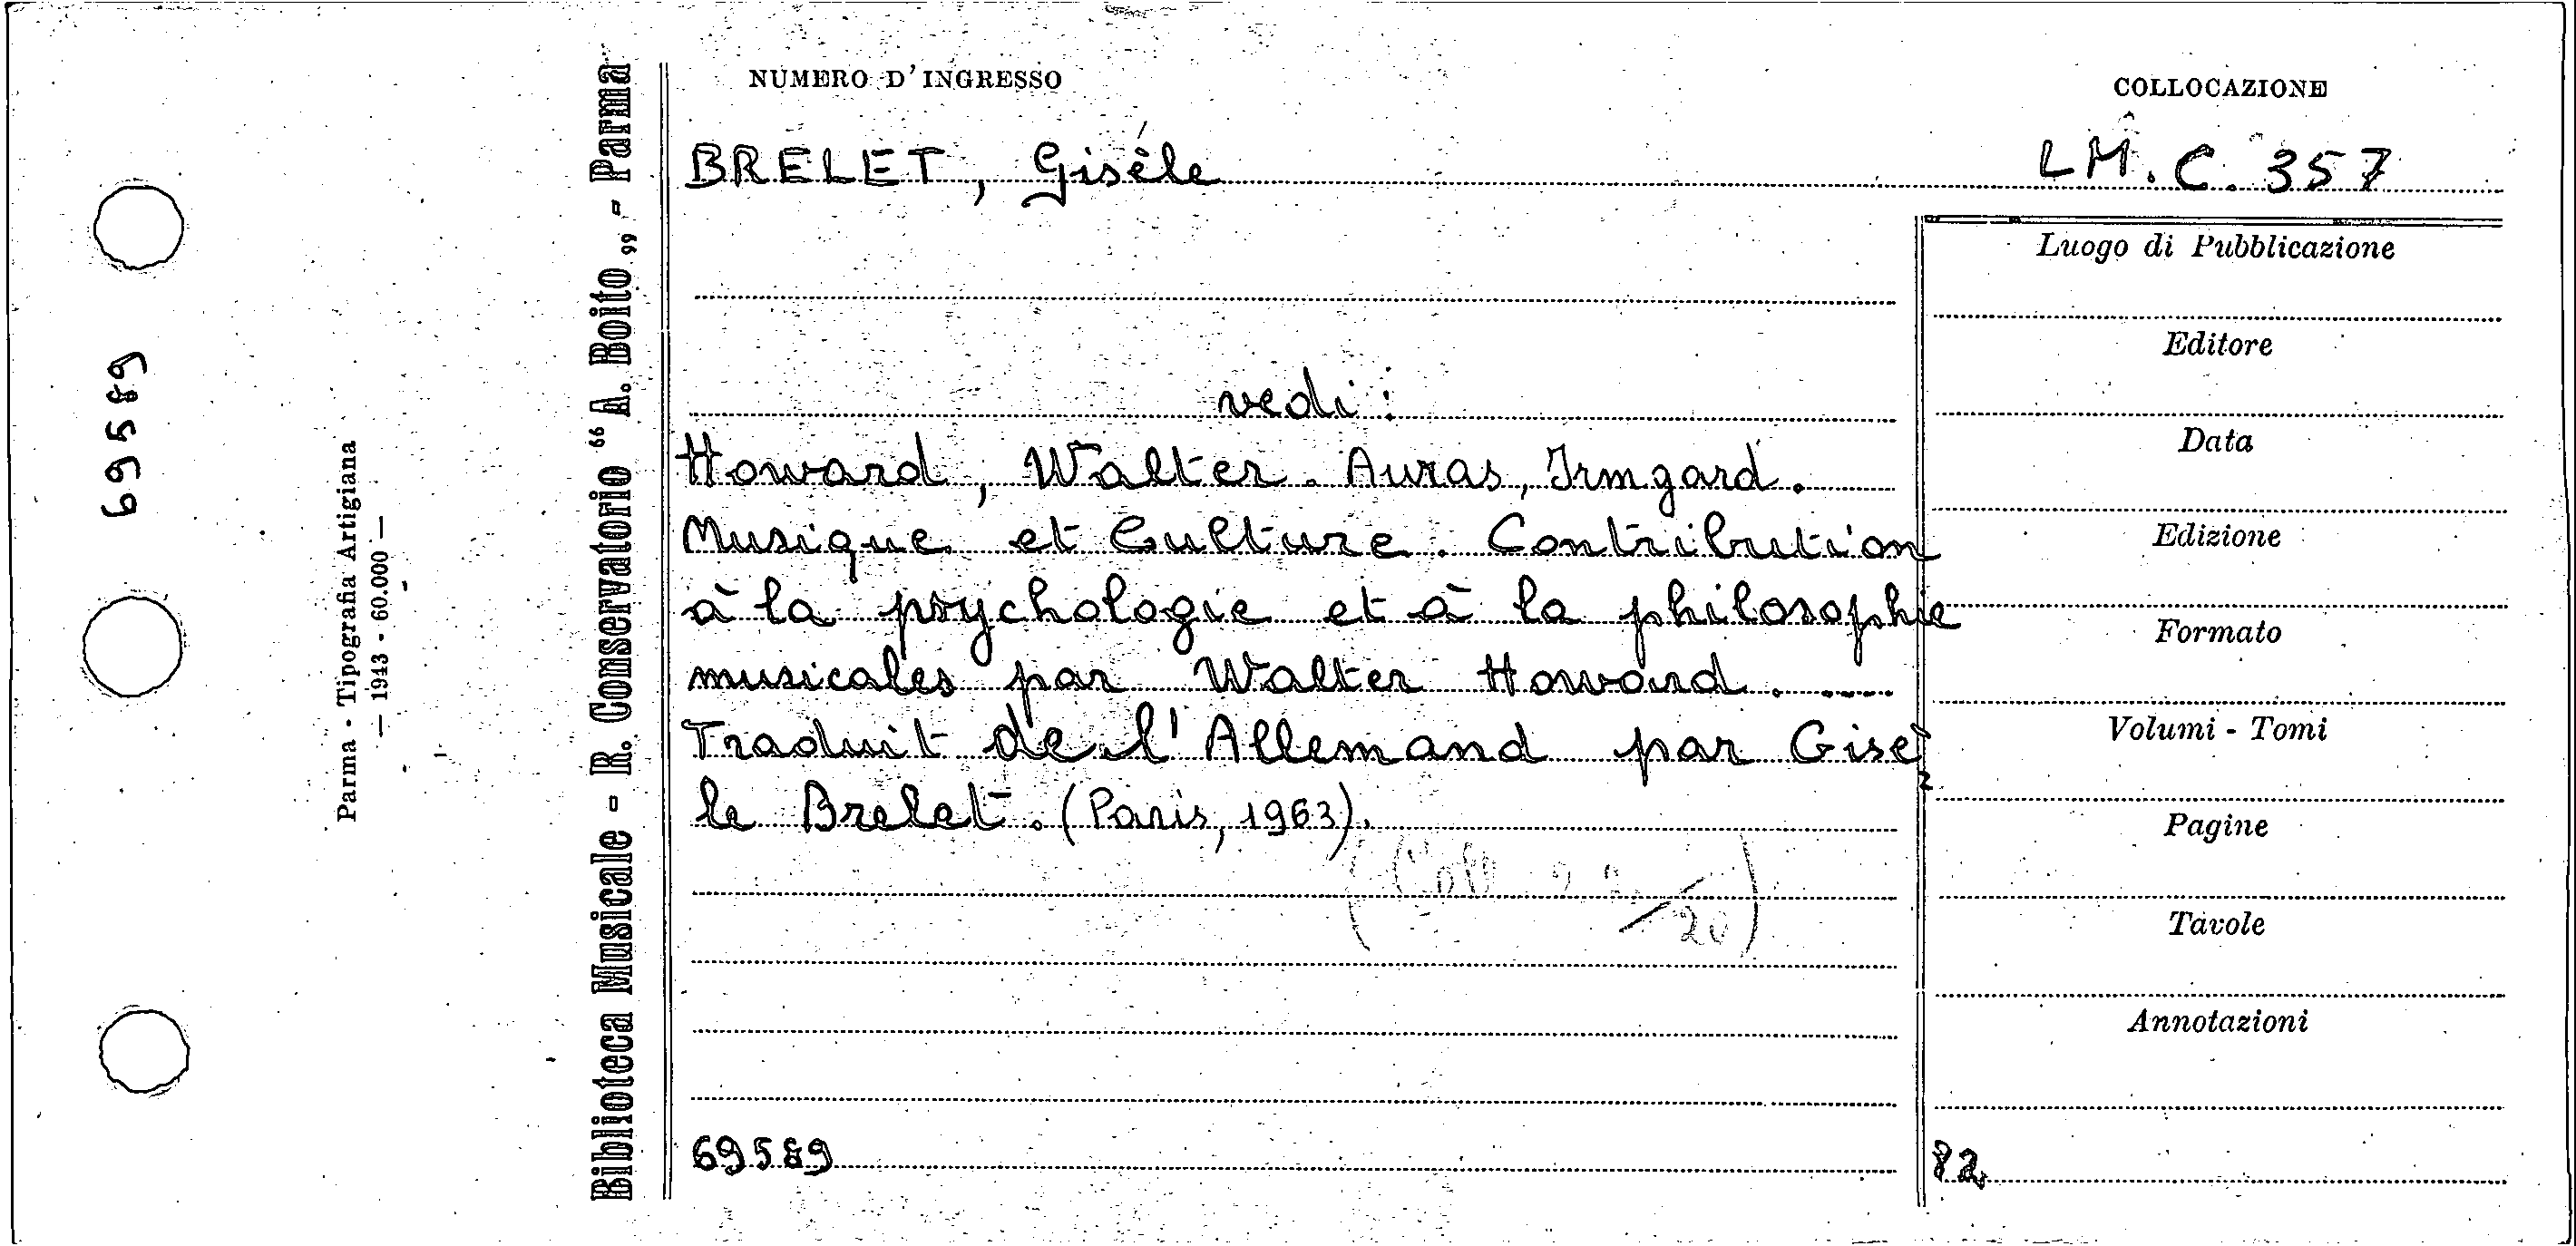 NUMERO D'INGRESSO
COLLOCAZIONE
BRELET, Gisèle
LM. C. 357
vedi:
Howard, Walter. Auras, Irmgard.
Musique et Culture. Contribution
à la psychologie et à la philosophie
musicales par Walter Howard. ....
Traduit de l'Allemand par Gisè
le Brelet. (Paris, 1963).
20)
69589
Luogo di Pubblicazione
Editore
Data
Edizione
Formato
Volumi - Tomi
Pagine
Tavole
Annotazioni
82
Biblioteca Musicale - R. Conservatorio “ A. Boito „ - Parma
Parma - Tipografia Artigiana
— 1943 - 60.000 —
69589